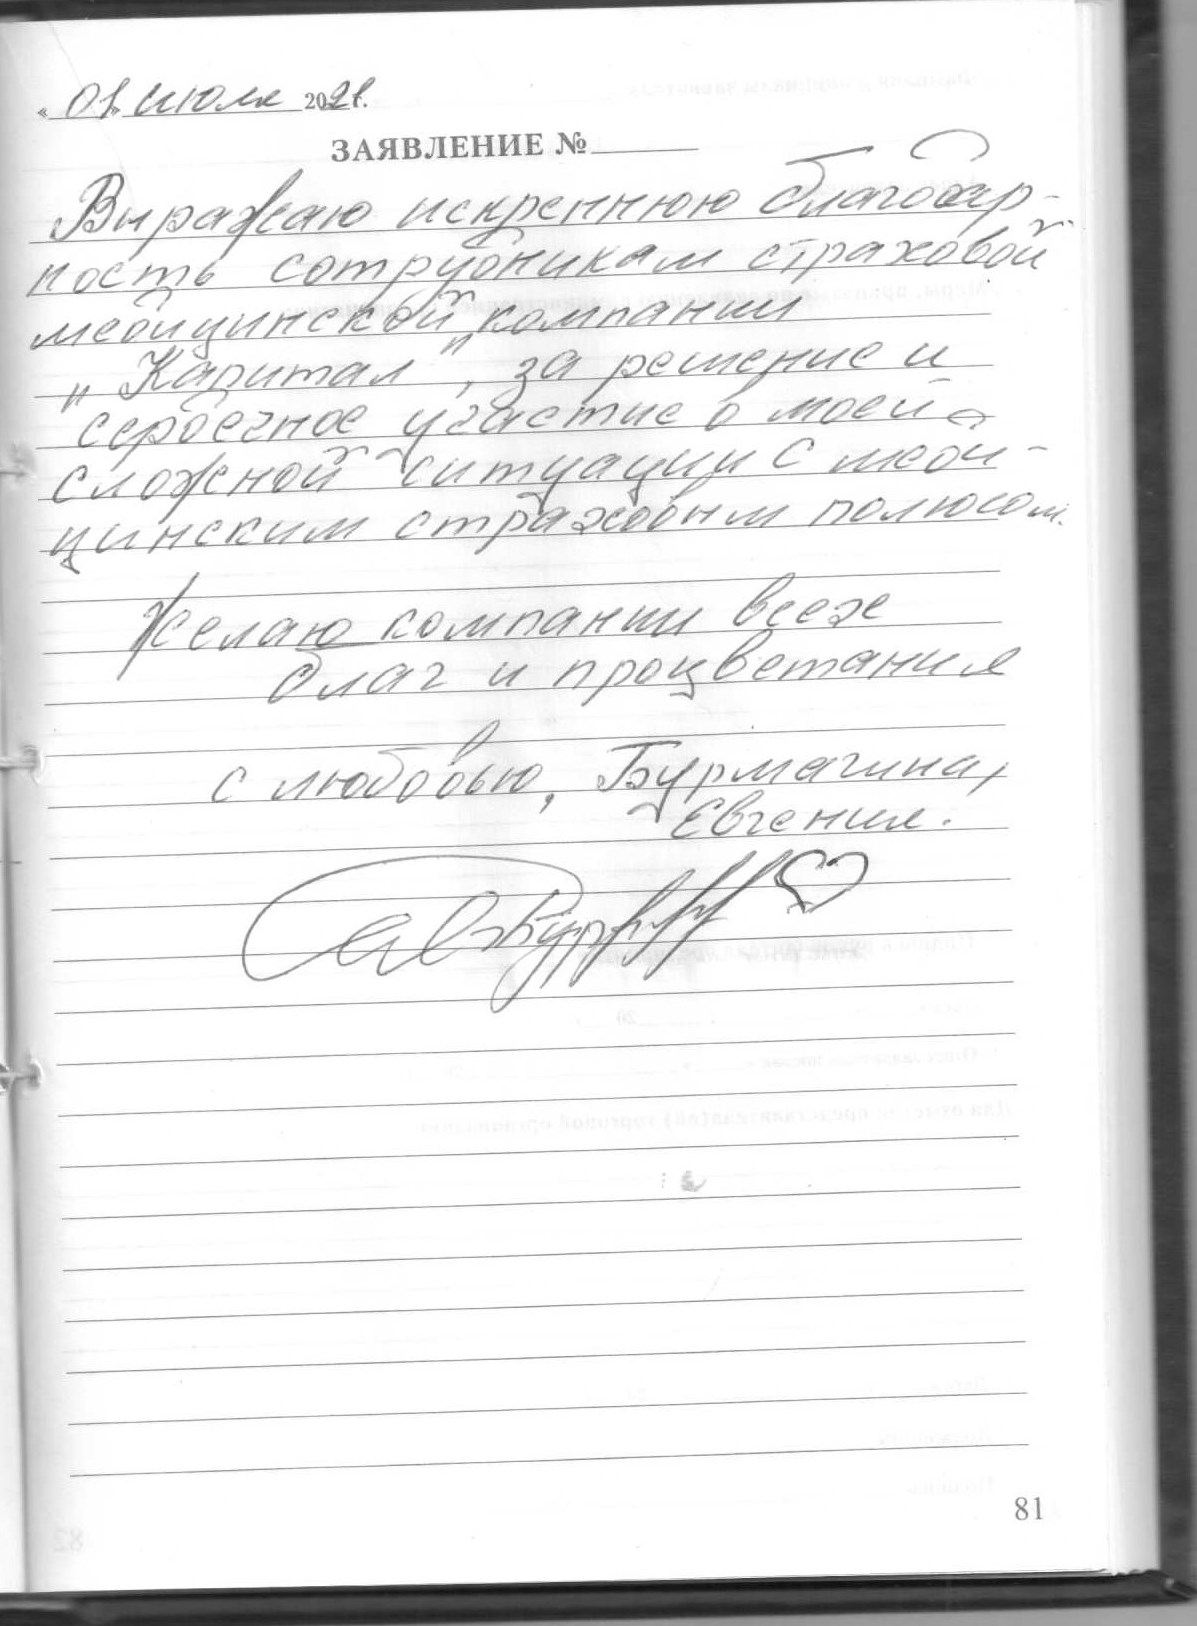 « 01 » июля 2021г.
ЗАЯВЛЕНИЕ №
Выражаю искреннюю благодар-
ность сотрудникам страховой
медицинской компании
"Капитал", за решение и
сердечное участие о моей
сложной ситуации с меди-
цинским страховым полюсом.
Желаю компании всех
благ и процветания
с любовью, Бурмагина,
Евгения.
81